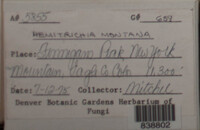 A# 5855 G# 659
HEMITRICHIA MONTANA
Place: New York
Mountain, Eagle Co. Colo 9,300'
Date: 7-12-95 Collector: Mitchel
Denver Botanic Gardens Herbarium of
Fungi
838802